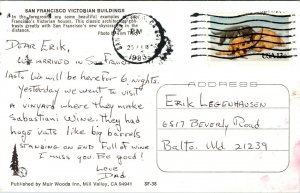 SAN FRANCISCO VICTORIAN BUILDINGS
In the foreground are some beautiful examples of
San Francisco's Victorian houses. This classic architecture
greatly with San Francisco's new skyscrapers in the
distance.
Photo by
PM
25
1983
USA 13c
Dear Erik,
We arrived in San Francisco
last
will be here for 6 nights.
Yesterday we went to visit
a vinyard where they make
Sabastiani Wine. They had
huge vats like big barrels
standing on end full of wine
I miss you. Be good!
Love
Dad
ADDRESS
Erik Legenhausen
6517 Beverly Road
Balto. Md 21239
Published by Muir Woods Inn, Mill Valley, CA 94941
SF-38